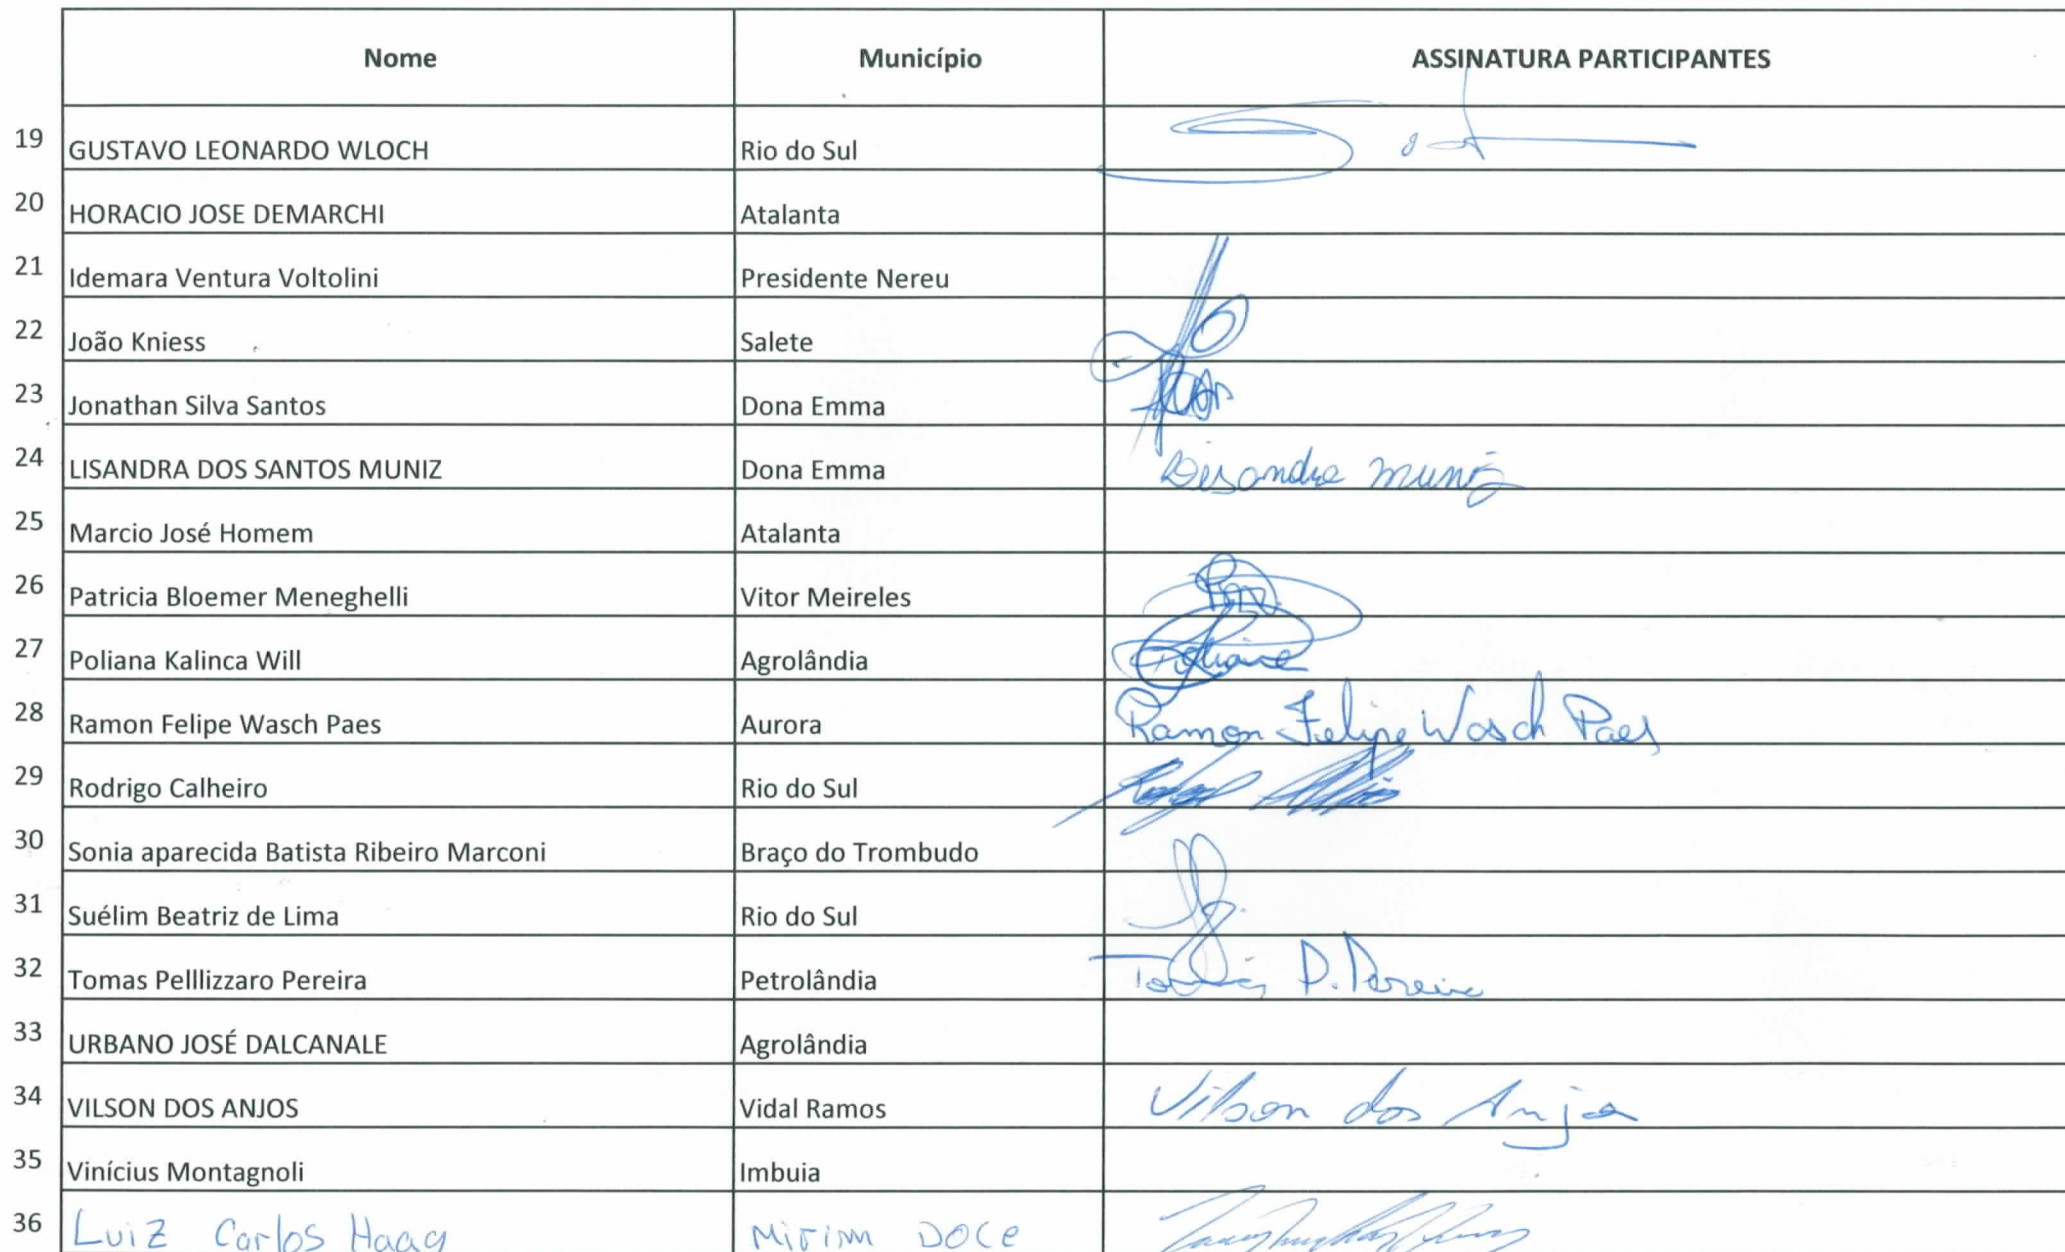 Nome Município ASSINATURA PARTICIPANTES
19 GUSTAVO LEONARDO WLOCH Rio do Sul
20 HORACIO JOSE DEMARCHI Atalanta
21 Idemara Ventura Voltolini Presidente Nereu
22 João Kniess Salete
23 Jonathan Silva Santos Dona Emma
24 LISANDRA DOS SANTOS MUNIZ Dona Emma Lisandra Muniz
25 Marcio José Homem Atalanta
26 Patricia Bloemer Meneghelli Vitor Meireles
27 Poliana Kalinca Will Agrolândia Poliana
28 Ramon Felipe Wasch Paes Aurora Ramon Felipe Wasch Paes
29 Rodrigo Calheiro Rio do Sul
30 Sonia aparecida Batista Ribeiro Marconi Braço do Trombudo
31 Suélim Beatriz de Lima Rio do Sul
32 Tomas Pelllizzaro Pereira Petrolândia Tomás P. Pereira
33 URBANO JOSÉ DALCANALE Agrolândia
34 VILSON DOS ANJOS Vidal Ramos Vilson dos Anjos
35 Vinícius Montagnoli Imbuia
36 Luiz Carlos Haag Mirim DOCe